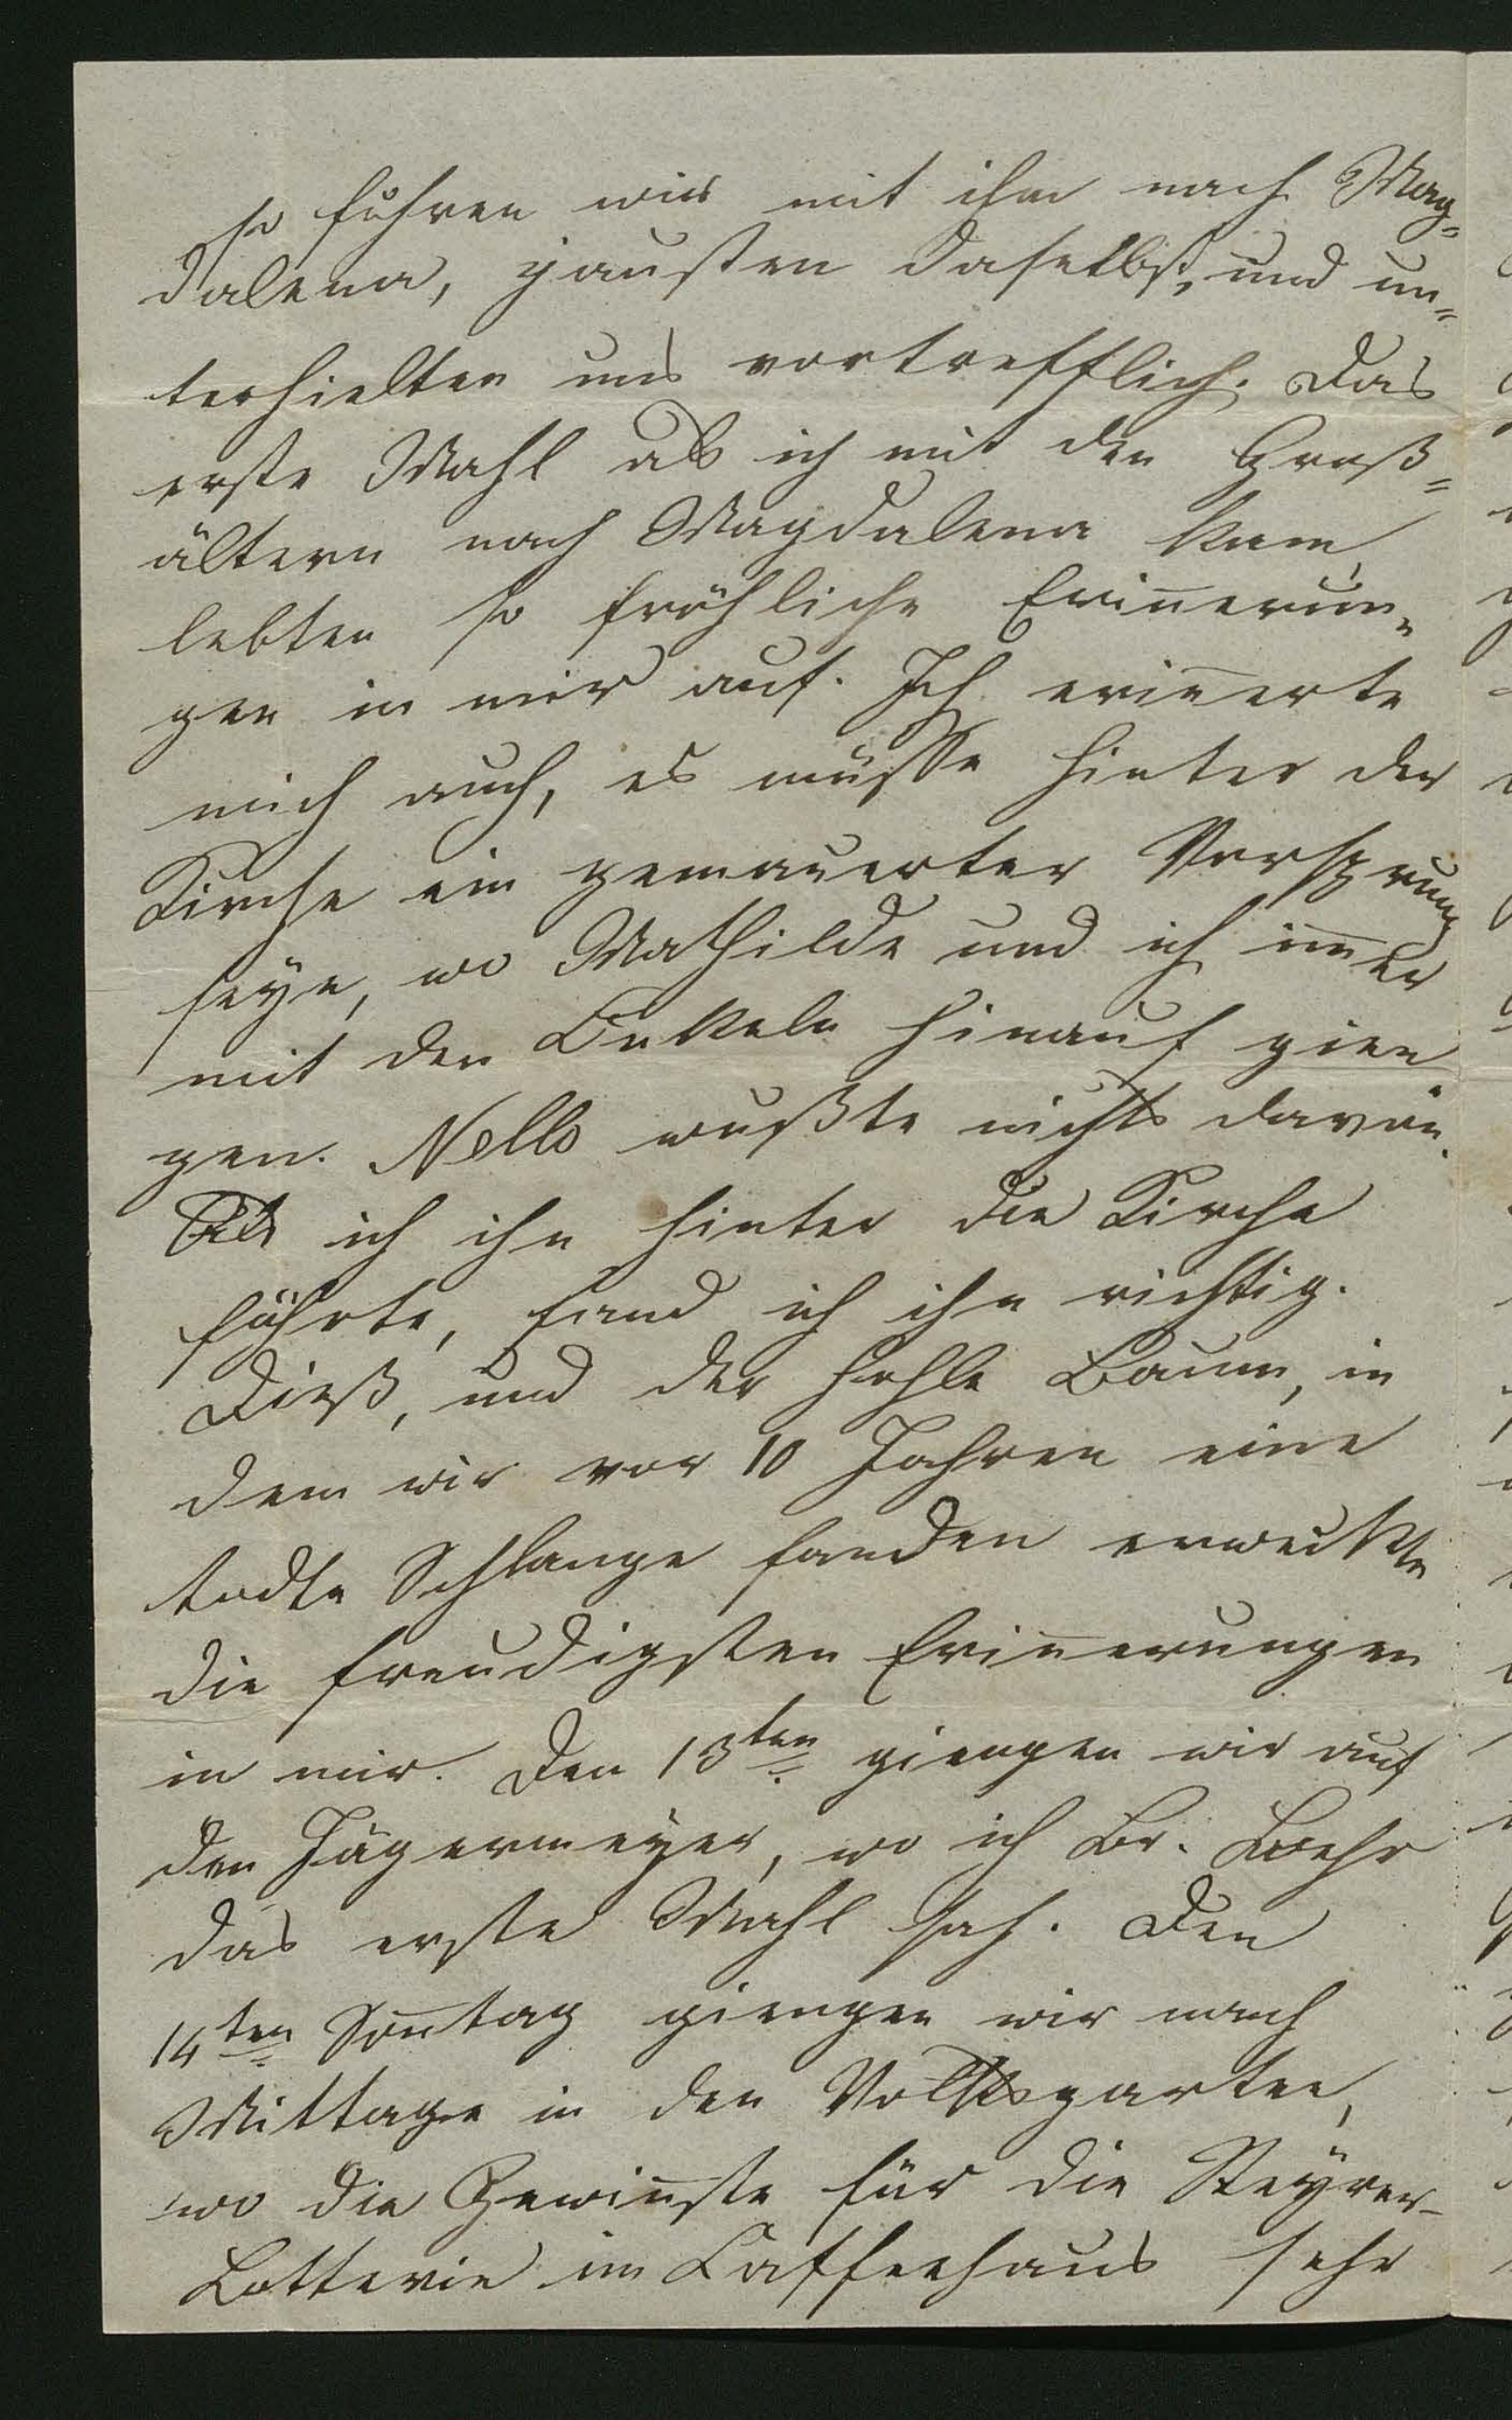 so fuhren wir mit ihm nach Mag=
dalena, jausten daselbst, und un=
terhielten uns vortrefflich. Das
erste Mahl als ich mit den Groß=
ältern nach Magdalena kam,
lebten so fröhliche Erin̄erun=
gen in mir auf. Ich erin̄erte
mich auch, es müsse hinter der
Kirche ein gemauerter Vorsprung
seye, wo Mathilde und ich im̄er
mit den Onkeln hinauf gien
gen. Nello wußte nichts davon.
Als ich ihn hinter die Kirche
führte, fand ich ihn richtig.
Dieß, und der hohle Baum, in
dem wir vor 10 Jahren eine
todte Schlange fanden erweckte
die freudigsten Erin̄erungen
in mir. Den 13ten giengen wir auf
den Jägermeyer, wo ich Br.
das erste Mahl sah. Den
14ten Son̄tag giengen wir nach
Mittage in den Volksgarten,
wo die Gewin̄ste für die Steyrer-
Lotterie im Caffeehaus sehr